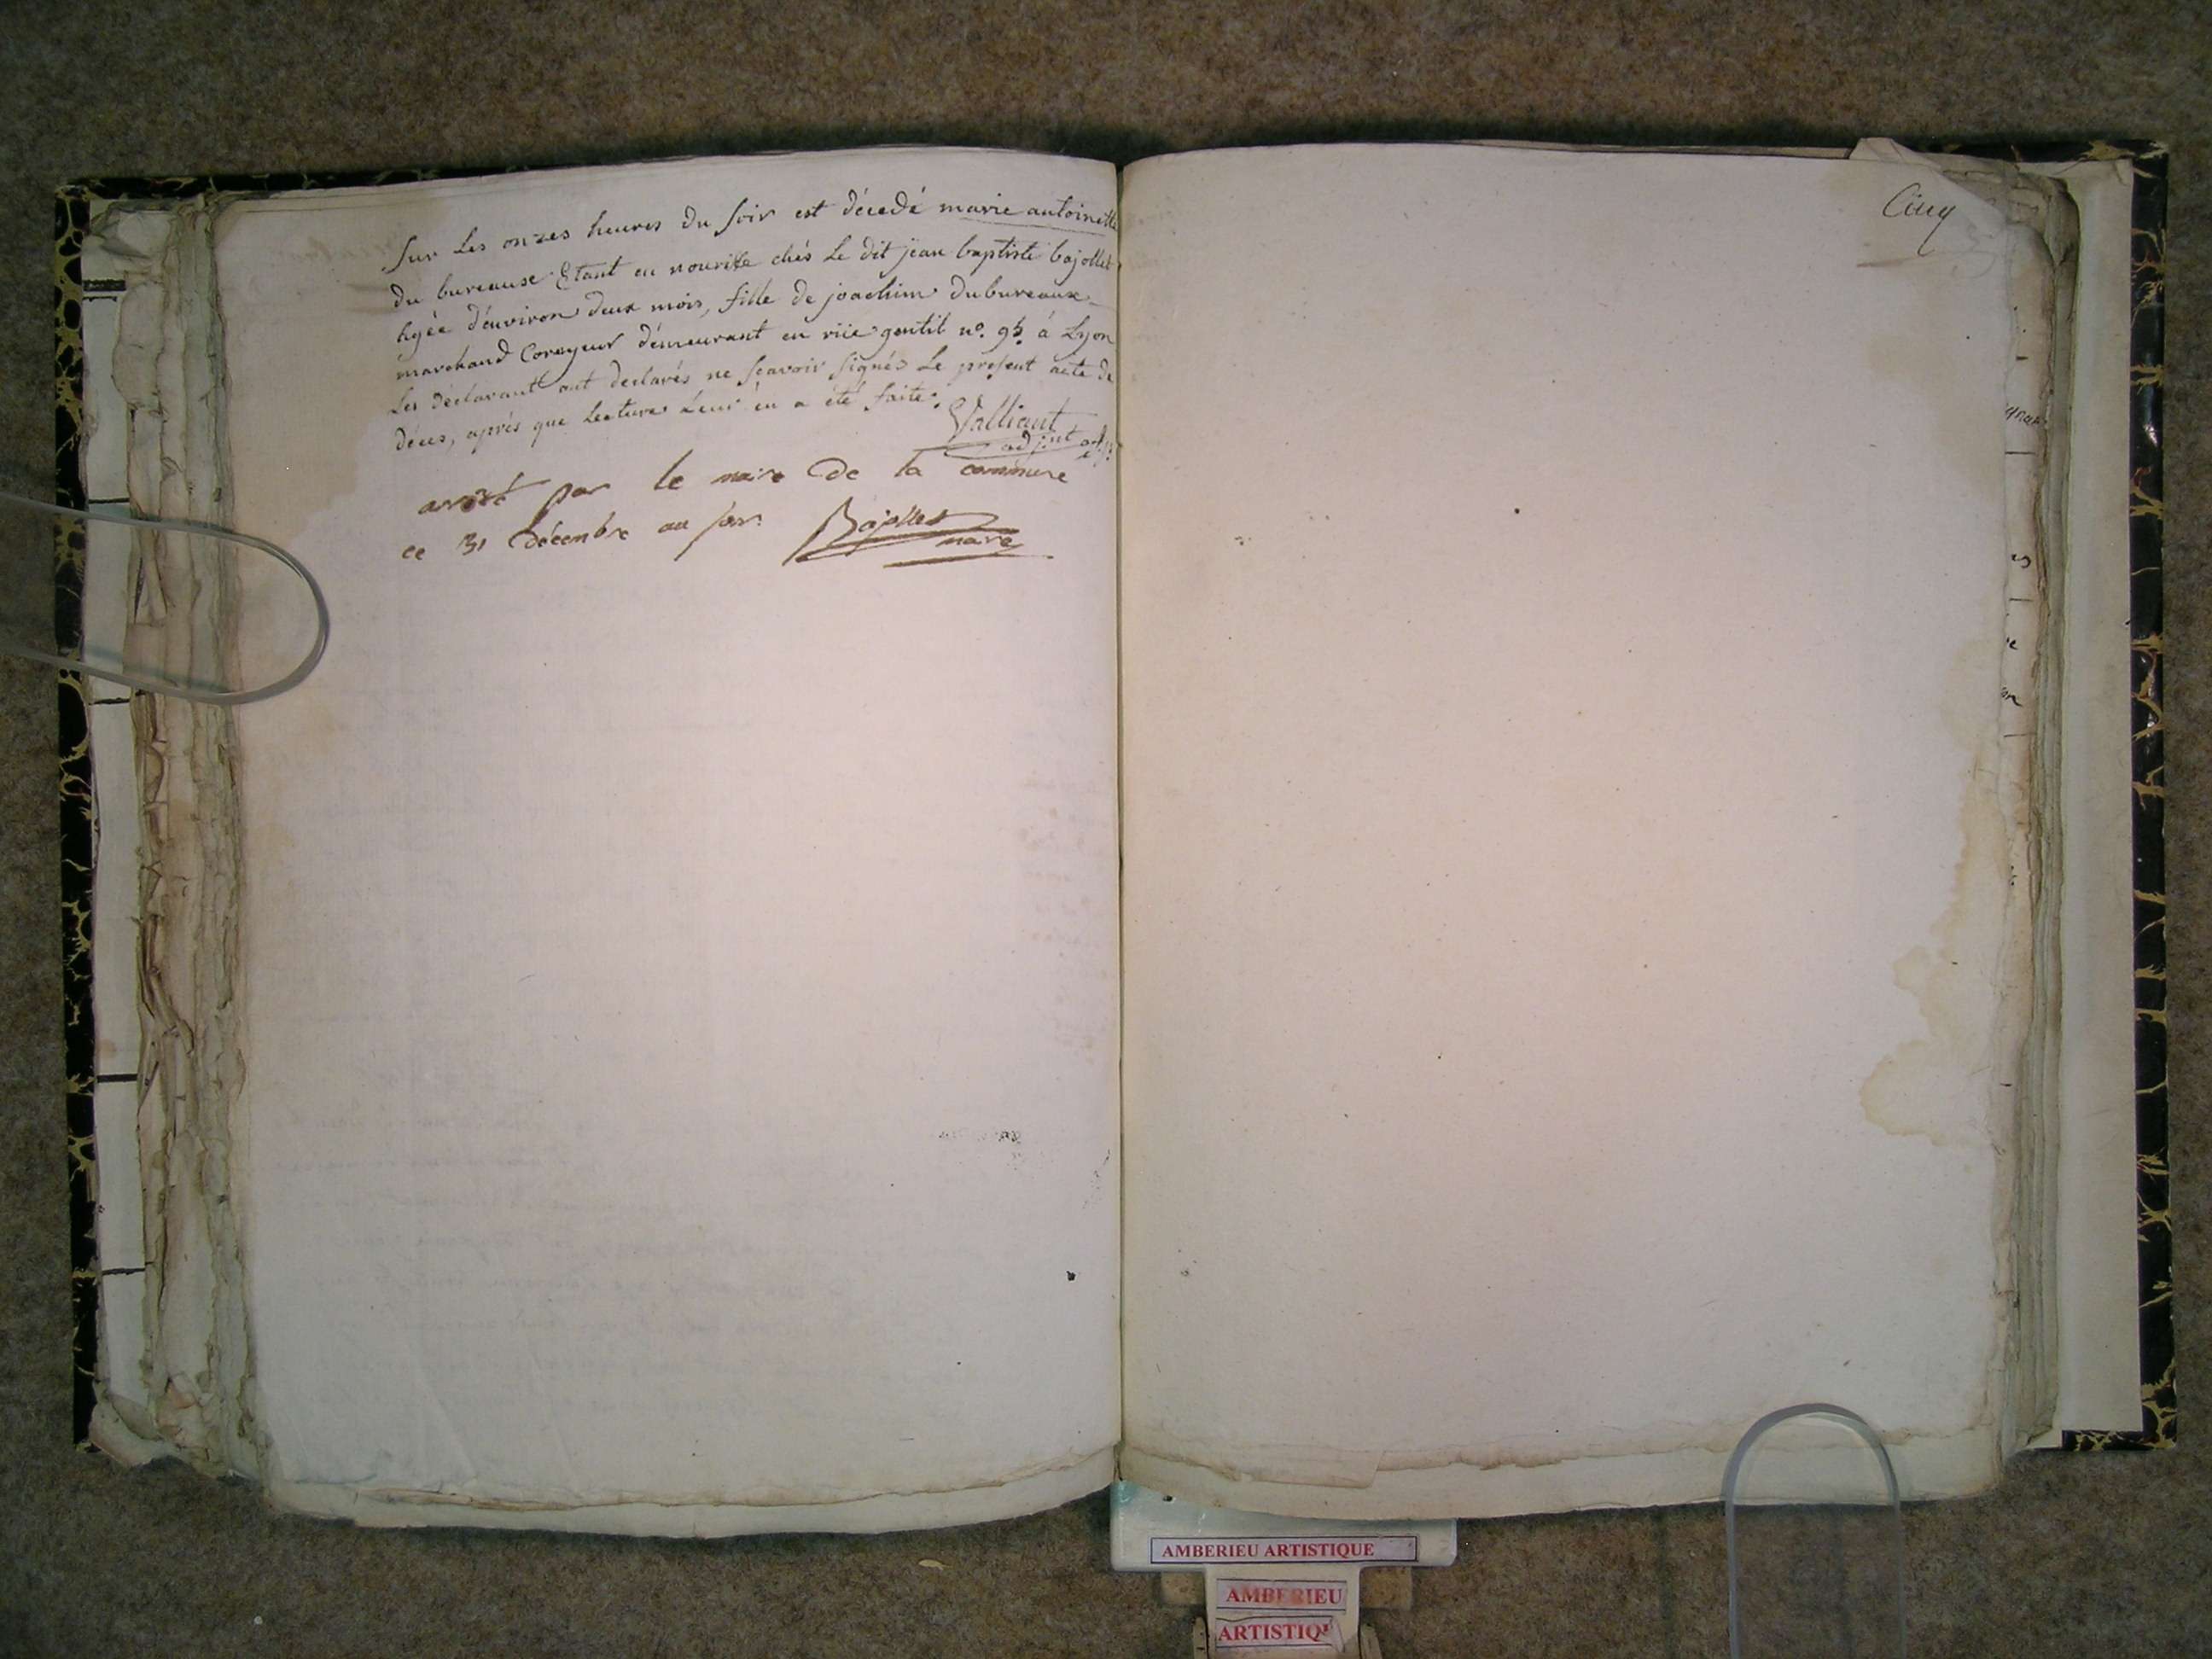 Sur Les onzes heures Du soir est décedé marie antoinette
du bureause Etant en nourisse chés Le dit jean baptiste bajollet
agée d'environ deux mois, fille de joachim dubureaux
marchand Coroyeur démeurant en rüe gentil n°. 95. à Lyon
Les déclarant ont declarés ne scavoir signés Le present acte de
déces, aprés que Lecture Leur en a été faite.
Valliant
adjnt
arrêté par le maire De la commune
ce 31 décembre au soir. Bajollet
maire
Cinq
AMBERIEU ARTISTIQUE
AMBERIEU
ARTISTIQU